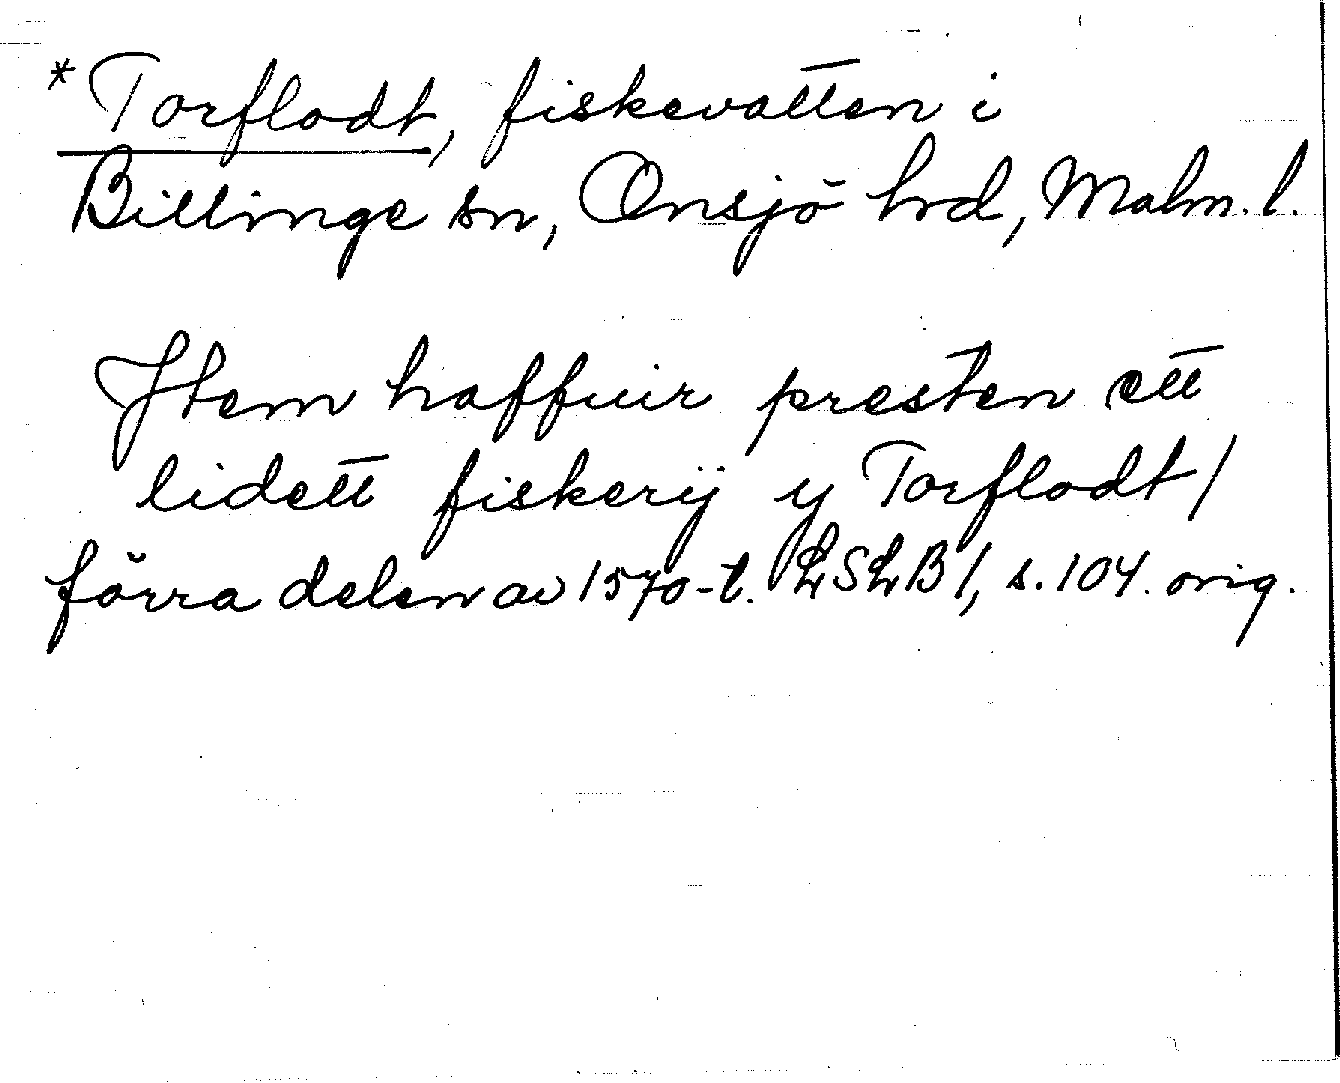 *Torflodt, fiskevatten i
Billinge sn, Onsjö hrd, Malm. l.
Item haffuir presten ett
lidett fiskerij y Torflodt/
förra delen av 1570-t. LSLB 1, s. 104. orig.